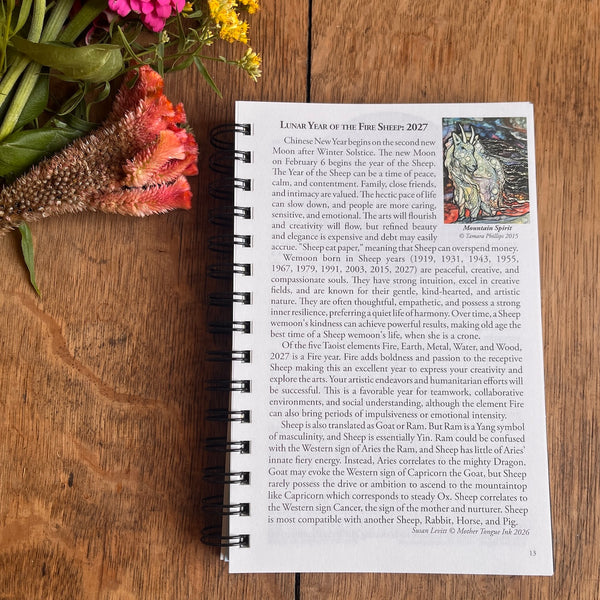 LUNAR YEAR OF THE FIRE SHEEP: 2027
Chinese New Year begins on the second new
Moon after Winter Solstice. The new Moon
on February 6 begins the year of the Sheep.
The Year of the Sheep can be a time of peace,
calm, and contentment. Family, close friends,
and intimacy are valued. The hectic pace of life
can slow down, and people are more caring,
sensitive, and emotional. The arts will flourish
and creativity will flow, but refined beauty
and elegance is expensive and debt may easily
accrue. "Sheep eat paper," meaning that Sheep can overspend money.
Mountain Spirit
© Tamara Phillips 2015
Wemoon born in Sheep years (1919, 1931, 1943, 1955,
1967, 1979, 1991, 2003, 2015, 2027) are peaceful, creative, and
compassionate souls. They have strong intuition, excel in creative
fields, and are known for their gentle, kind-hearted, and artistic
nature. They are often thoughtful, empathetic, and possess a strong
inner resilience, preferring a quiet life of harmony. Over time, a Sheep
wemoon's kindness can achieve powerful results, making old age the
best time of a Sheep wemoon's life, when she is a crone.
Of the five Taoist elements Fire, Earth, Metal, Water, and Wood,
2027 is a Fire year. Fire adds boldness and passion to the receptive
Sheep making this an excellent year to express your creativity and
explore the arts. Your artistic endeavors and humanitarian efforts will
be successful. This is a favorable year for teamwork, collaborative
environments, and social understanding, although the element Fire
can also bring periods of impulsiveness or emotional intensity.
Sheep is also translated as Goat or Ram. But Ram is a Yang symbol
of masculinity, and Sheep is essentially Yin. Ram could be confused
with the Western sign of Aries the Ram, and Sheep has little of Aries'
innate fiery energy. Instead, Aries correlates to the mighty Dragon.
Goat may evoke the Western sign of Capricorn the Goat, but Sheep
rarely possess the drive or ambition to ascend to the mountaintop
like Capricorn which corresponds to steady Ox. Sheep correlates to
the Western sign Cancer, the sign of the mother and nurturer. Sheep
is most compatible with another Sheep, Rabbit, Horse, and Pig.
Susan Levitt © Mother Tongue Ink 2026
13